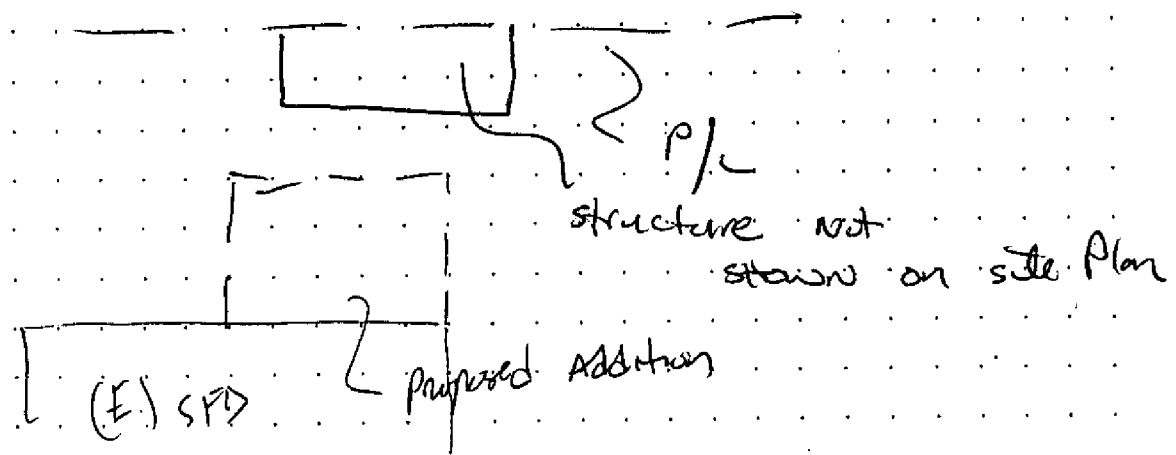 P/L
structure not
shown on site Plan
proposed Addition
(E) SFD